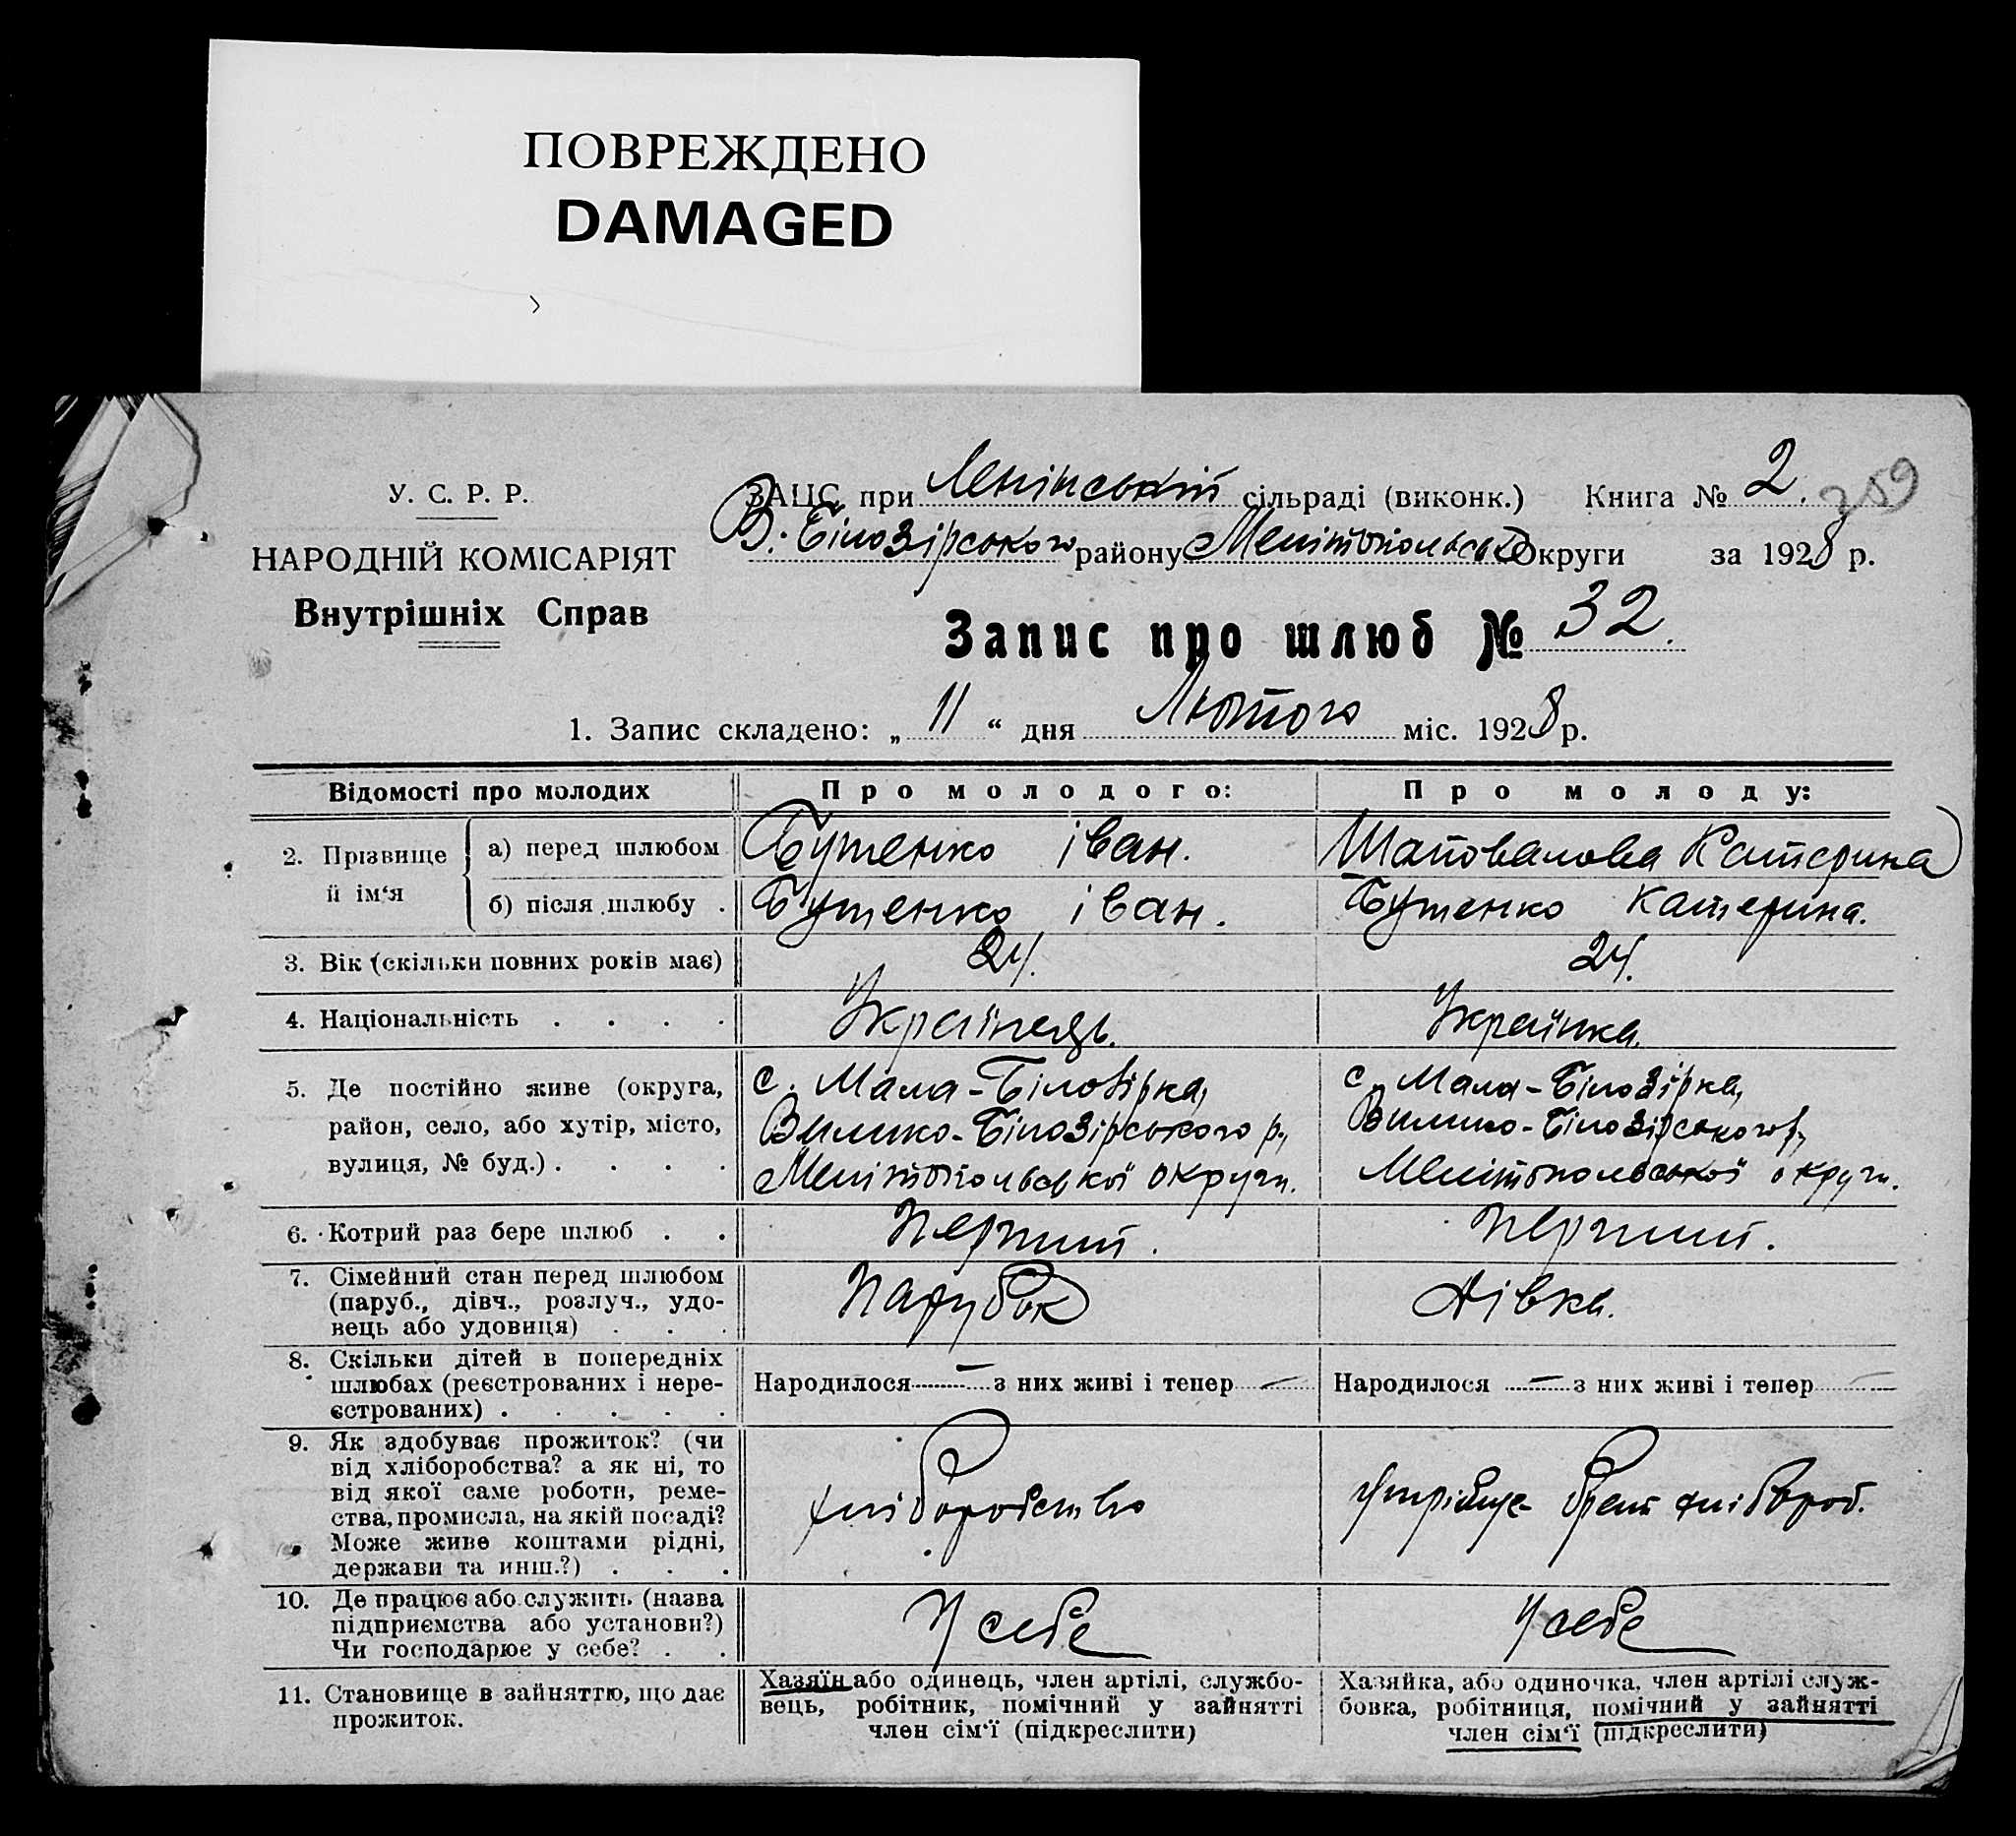 ПОВРЕЖДЕНО
DAMAGED
У. С. Р. Р.
НАРОДНІЙ КОМІСАРІЯТ
Внутрішніх Справ
ЗАЦС при Ленінській сільраді (виконк.) Книга № 2. 259
В. Білозірського району Мелітопольськ Округи за 1928 р.
Запис про шлюб № 32.
1. Запис складено: „ 11 “ дня Лютого міс. 1928 р.
Відомості про молодих Про молодого: Про молоду:
2. Прізвище й ім‘я
а) перед шлюбом Бутенко Іван. Шаповалова Катерина
б) після шлюбу . Бутенко Іван. Бутенко Катерина.
3. Вік (скільки повних років має) 24. 24.
4. Національність . . . . Українець. Українка.
5. Де постійно живе (округа, район, село, або хутір, місто, вулиця, № буд.) . . . .
с. Мала-Білозірка,
Велико-Білозірського р.,
Мелітопольської округи.
с. Мала-Білозірка,
Велико-Білозірського р.,
Мелітопольської округи.
6. Котрий раз бере шлюб . . Перший. Перший.
7. Сімейний стан перед шлюбом
(паруб., дівч., розлуч., удо-
вець або удовиця) . . . Парубок Дівка.
8. Скільки дітей в попередніх
шлюбах (реєстрованих і нере-
єстрованих) . . . . .
Народилося — з них живі і тепер — Народилося — з них живі і тепер —
9. Як здобуває прожиток? (чи
від хліборобства? а як ні, то
від якої саме роботи, реме-
ства, промисла, на якій посаді?
Може живе коштами рідні,
держави та инш.?) . . .
хліборобство брат хлібороб.
10. Де працює або служить (назва
підприємства або установи?)
Чи господарює у себе? . .
У себе У себе
11. Становище в зайняттю, що дає
прожиток.
Хазяїн або одинець, член артілі, службо-
вець, робітник, помічний у зайнятті
член сім‘ї (підкреслити)
Хазяйка, або одиночка, член артілі служ-
бовка, робітниця, помічний у зайнятті
член сім‘ї (підкреслити)